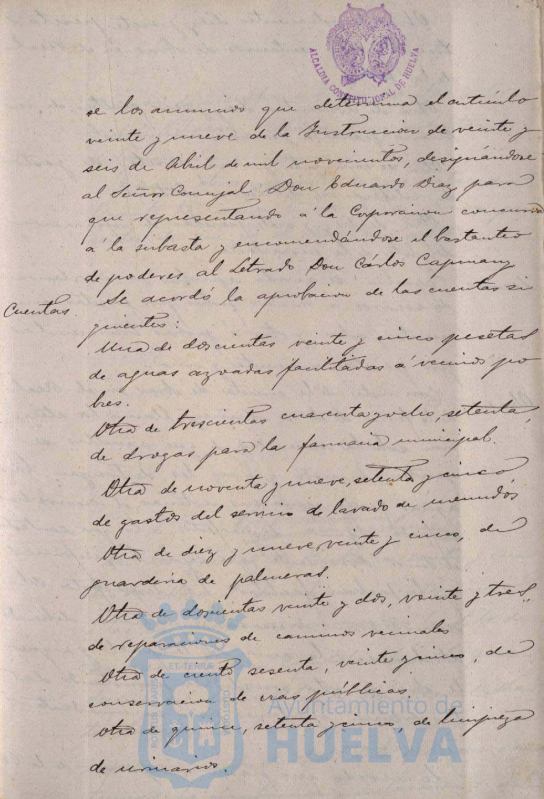 ALCALDIA CONSTITUCIONAL DE HUELVA
se los anuncios que determina el artículo
veinte y nueve de la Instruccion de veinte y
seis de Abril de mil novecientos, designándose
al Señor Concejal Don Eduardo Diaz para
que representando á la Corporacion concurra
á la subasta y encomendándose el bastanteo
de poderes al Letrado Don Cárlos Capmany
Cuentas. Se acordó la aprobacion de las cuentas si
guientes:
Una de doscientas veinte y cinco pesetas
de aguas azoadas facilitadas á vecinos po
bres.
Otra de trescientas cuarenta y ocho, setenta,
de drogas para la farmacia municipal.
Otra de noventa y nueve, setenta y cinco
de gastos del servicio de lavado de menudos
Otra de diez y nueve, veinte y cinco, de
guarderia de palmeras.
Otra de doscientas veinte y dos, veinte y tres,
de reparaciones de caminos vecinales
Otra de ciento sesenta, veinte y cinco, de
conservacion de vias públicas
Otra de quince, setenta y cinco, de limpieza
de urinarios.
Ayuntamiento de
HUELVA